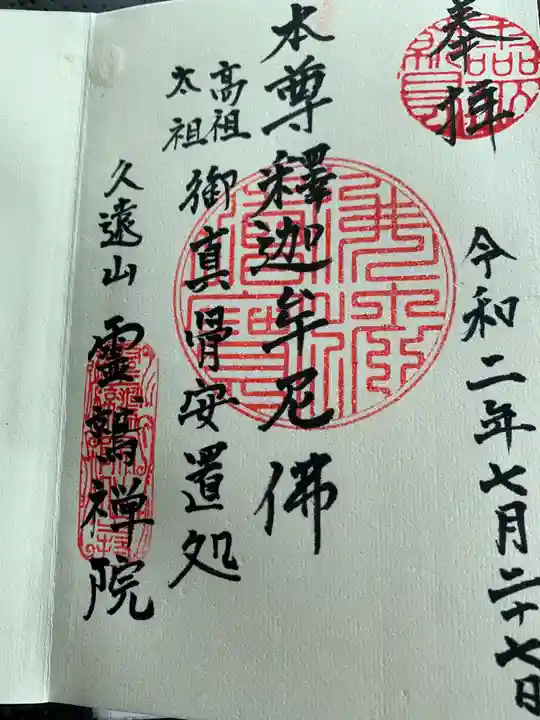 奉拝
令和二年七月二十七日
本尊釋迦牟尼佛
高祖
太祖
御真骨安置処
久遠山
霊鷲禅院